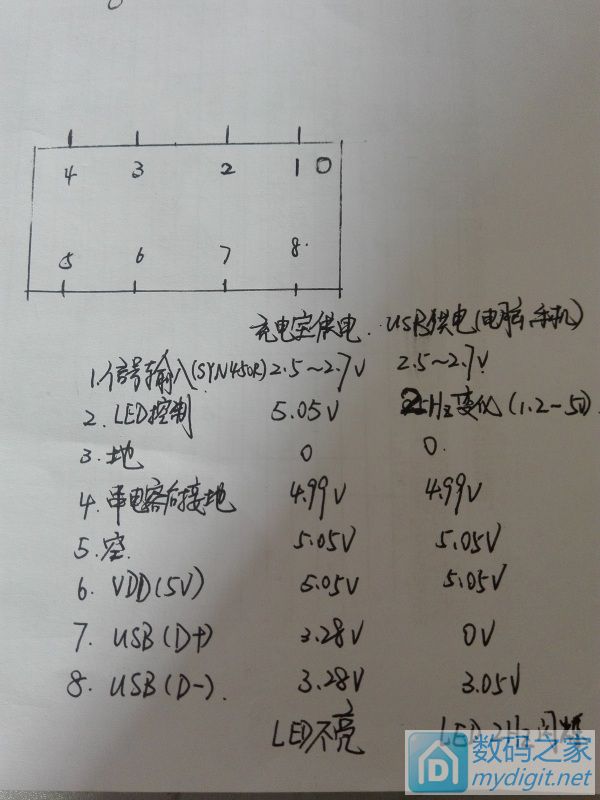 4 3 2 1 0
5 6 7 8.
充电宝供电. USB供电(电脑、手机)
1.信号输入(SYN450R) 2.5~2.7V 2.5~2.7V
2. LED控制 5.05V 2Hz变化(1.2~5V).
3. 地 0 0.
4. 串电容后接地 4.99V 4.99V
5. 空. 5.05V 5.05V
6. VDD(5V) 5.05V 5.05V
7. USB(D+) 3.28V 0V
8. USB(D-). 3.28V 3.05V
LED不亮 LED 2Hz闪烁
数码之家
mydigit.net